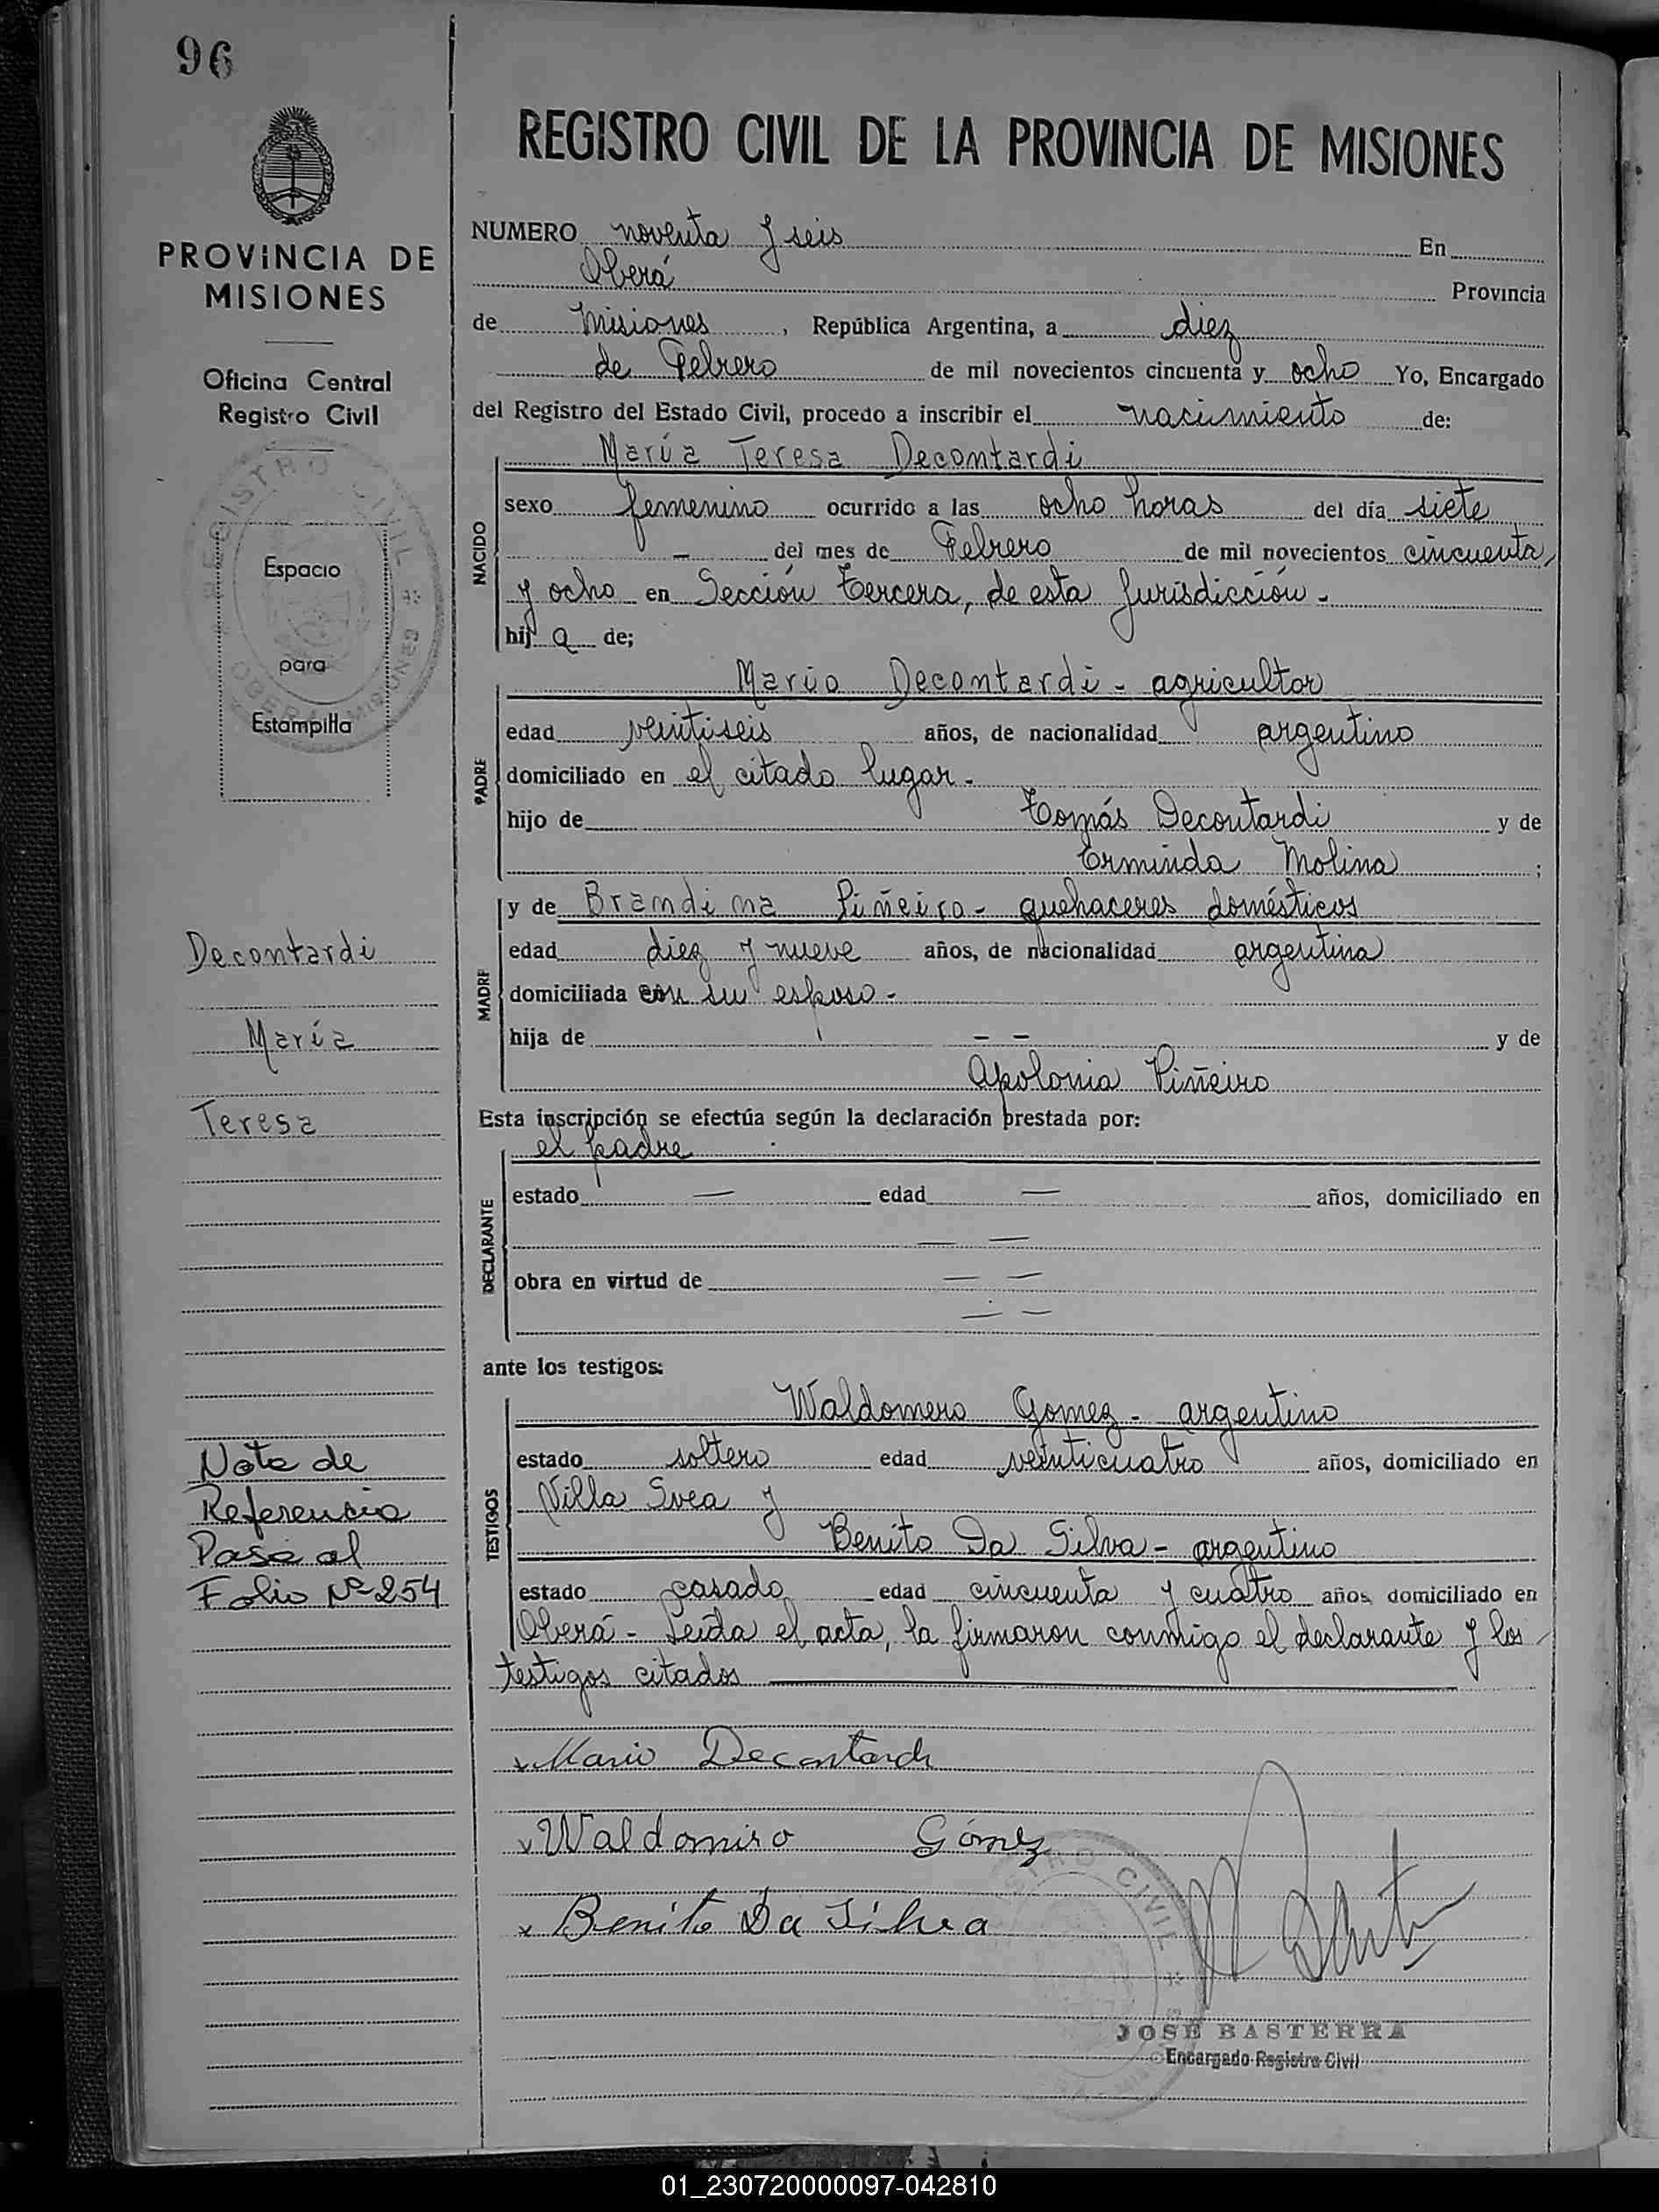 96
PROVINCIA DE
MISIONES
Oficina Central
Registro Civil
REGISTRO CIVIL
OBERÁ MISIONES
Espacio
para
Estampilla
Decontardi
María
Teresa
Nota de
Referencia
Pase al
Folio Nº 254
REGISTRO CIVIL DE LA PROVINCIA DE MISIONES
NUMERO noventa y seis En
Oberá Provincia
de Misiones, República Argentina, a diez
de Febrero de mil novecientos cincuenta y ocho Yo, Encargado
del Registro del Estado Civil, procedo a inscribir el nacimiento de:
NACIDO
María Teresa Decontardi
sexo femenino ocurrido a las ocho horas del día siete
- del mes de Febrero de mil novecientos cincuenta
y ocho en Sección tercera, de esta Jurisdicción -
hij a de;
PADRE
Mario Decontardi - agricultor
edad veintiseis años, de nacionalidad argentino
domiciliado en el citado lugar -
hijo de Tomás Decontardi y de
Erminda Molina ;
MADRE
y de Brandina Piñeiro - quehaceres domésticos
edad diez y nueve años, de nacionalidad argentina
domiciliada con su esposo -
hija de - - y de
Apolonia Piñeiro
Esta inscripción se efectúa según la declaración prestada por:
DECLARANTE
el padre
estado — edad — años, domiciliado en
— —
obra en virtud de — —
— —
ante los testigos:
TESTIGOS
Waldomero Gomez - argentino
estado soltero edad veinticuatro años, domiciliado en
Villa Svea y
Benito Da Silva - argentino
estado casado edad cincuenta y cuatro años, domiciliado en
Oberá - Leída el acta, la firmaron conmigo el declarante y los
testigos citados
x Mario Decontardi
x Waldomiro Gómez
x Benito Da Silva
JOSE BASTERRA
Encargado Registro Civil
01_230720000097-042810